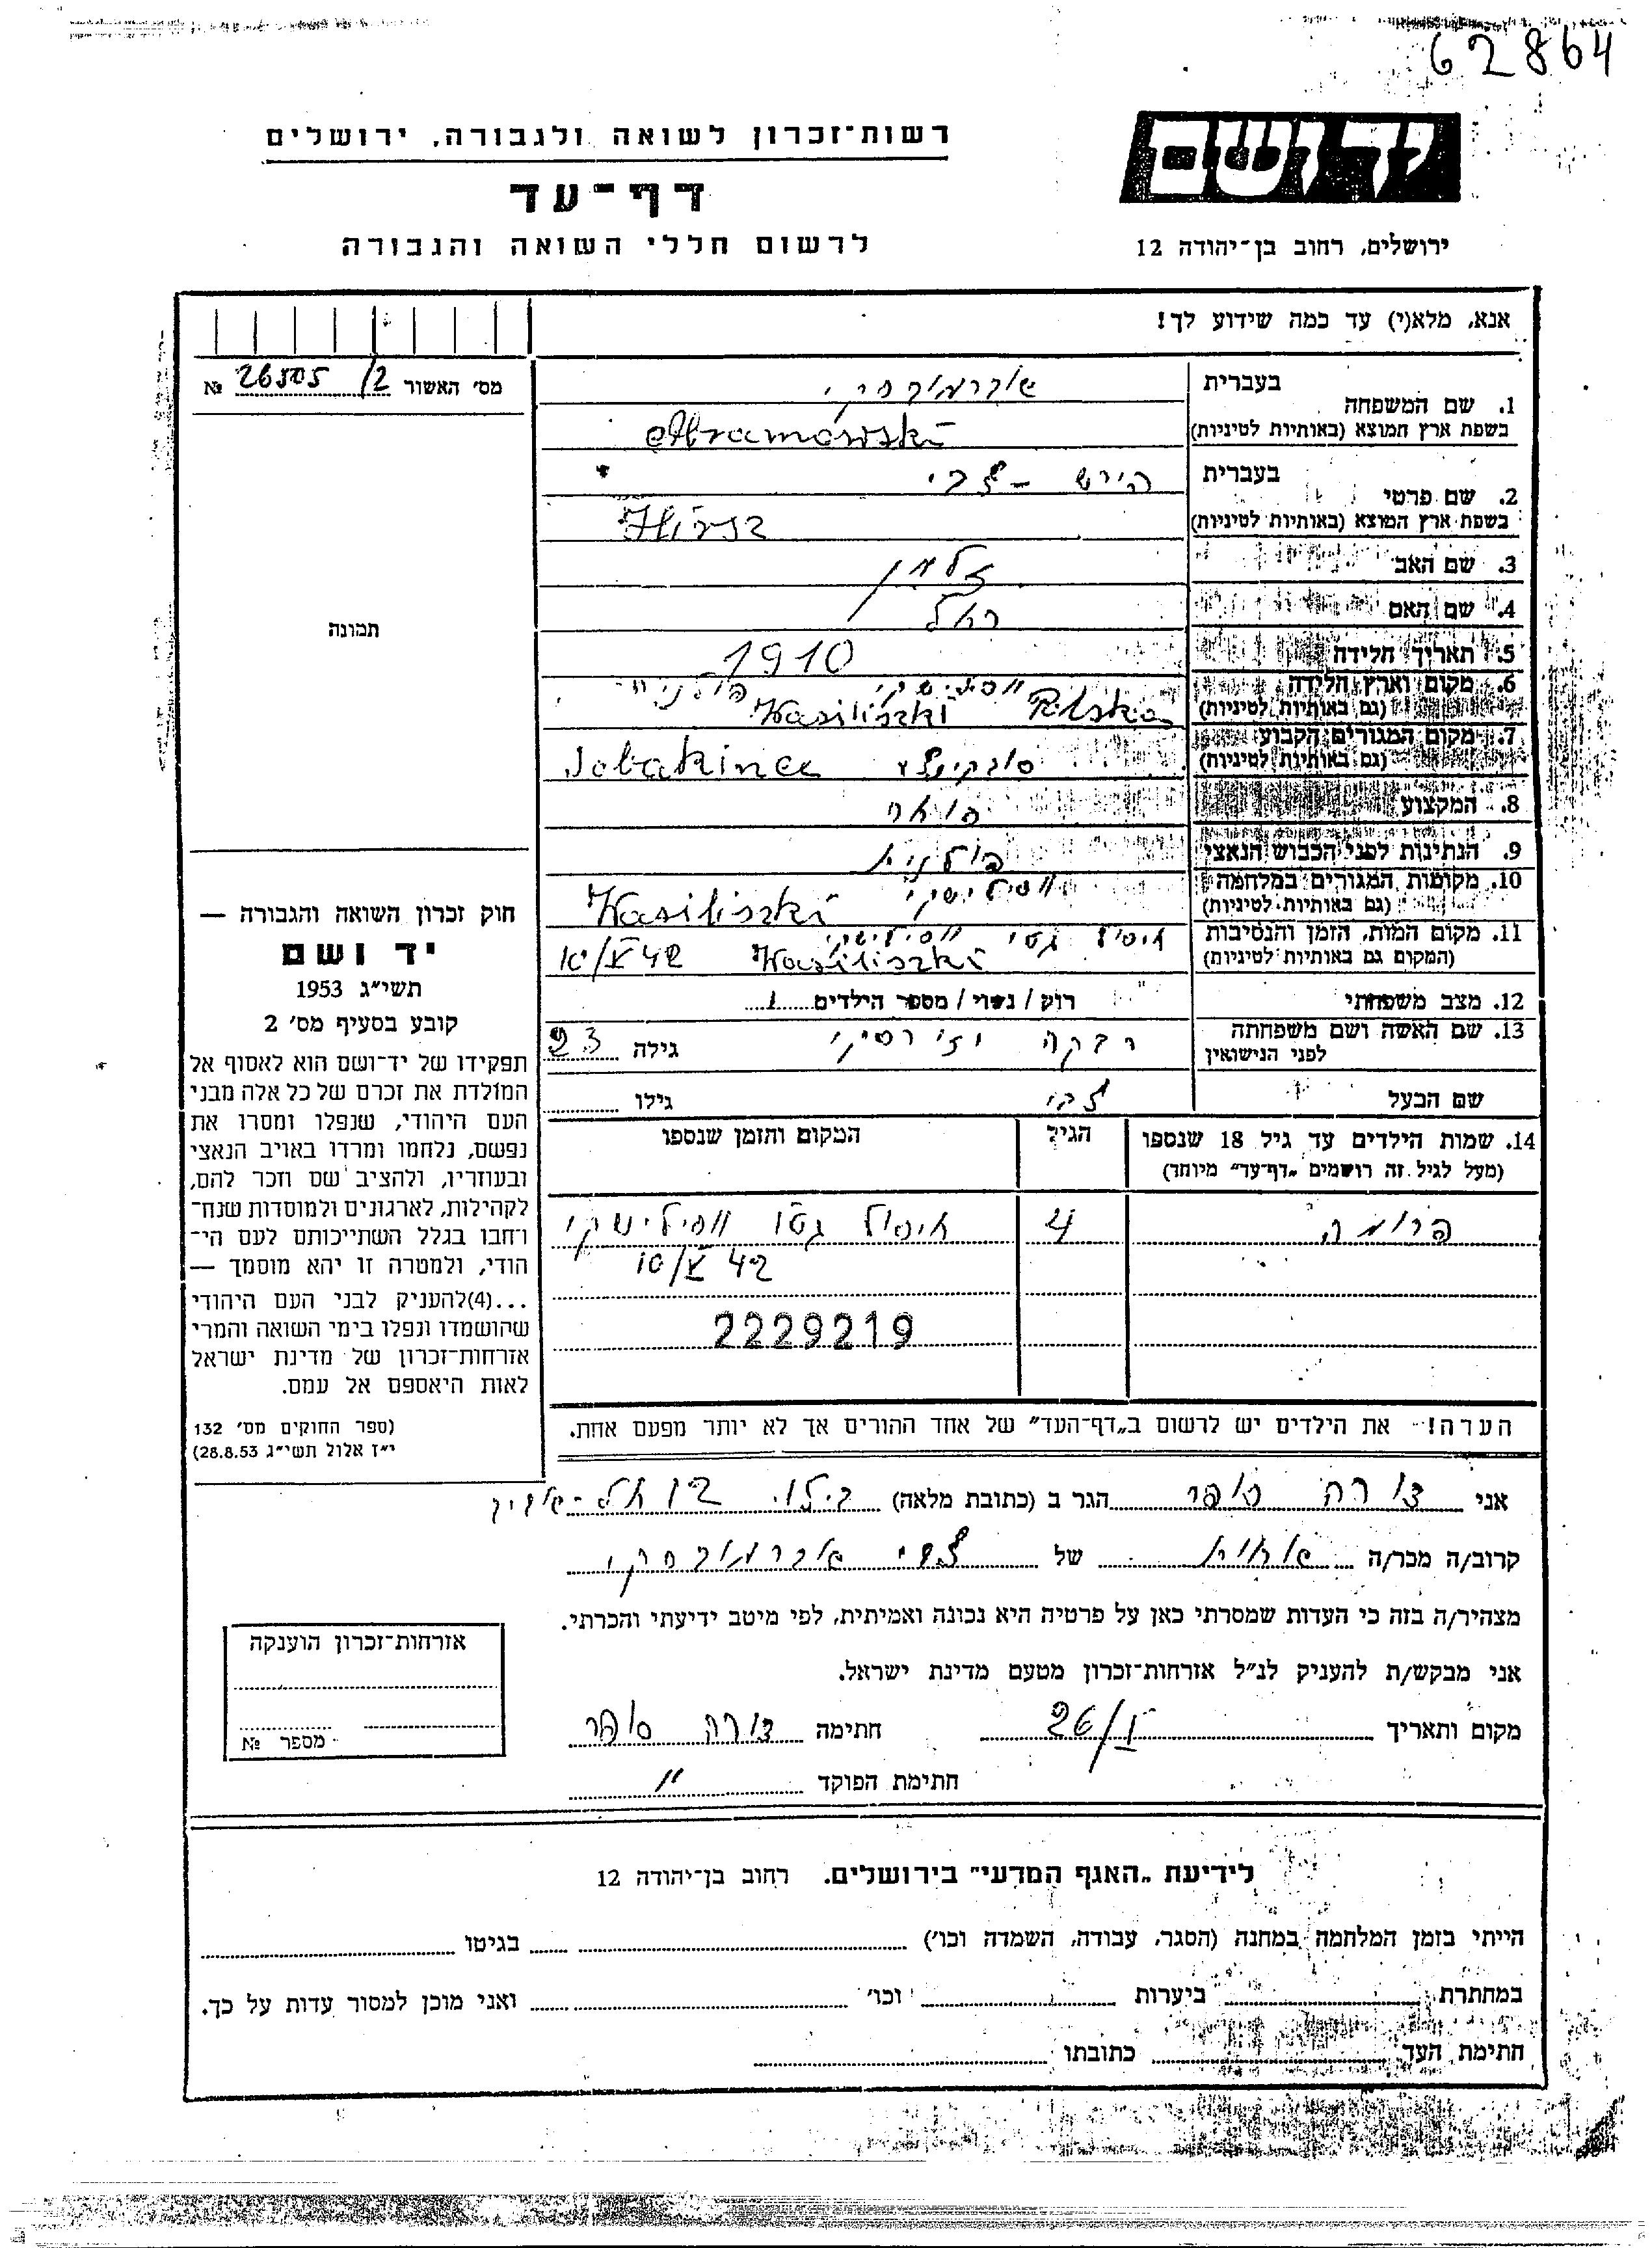 62864
יד ושם
רשות־זכרון לשואה ולגבורה, ירושלים
דף־עד
לרשום חללי השואה והגבורה
ירושלים, רחוב בן־יהודה 12
אנא, מלא(י) עד כמה שידוע לך!
מס׳ האשור 26505/2 №
תמונה
1. שם המשפחה בעברית אברמובסקי
בשפת ארץ המוצא (באותיות לטיניות) Abramowski
2. שם פרטי בעברית הירש - צבי
בשפת ארץ המוצא (באותיות לטיניות) Hirsz
3. שם האב זלמן
4. שם האם רחל
5. תאריך הלידה 1910
6. מקום וארץ הלידה וסילישקי פולניה
(גם באותיות לטיניות) Wasiliszki Polska
7. מקום המגורים הקבוע
(גם באותיות לטיניות) סובקינצא Sobakince
8. המקצוע סוחר
9. הנתינות לפני הכבוש הנאצי פולנית
10. מקומות המגורים במלחמה
(גם באותיות לטיניות) ווסילישקי Wasiliszki
11. מקום המות, הזמן והנסיבות חיסול גטו ווסילישקי
(המקום גם באותיות לטיניות) Wasiliszki 10/V 42
12. מצב משפחתי רוק / נשוי / מספר הילדים 1
13. שם האשה ושם משפחתה
לפני הנישואין רבקה גילה 23
שם הבעל צבי גילו
14. שמות הילדים עד גיל 18 שנספו
(מעל לגיל זה רושמים „דף־עד״ מיוחד)
הגיל
המקום והזמן שנספו
פרומה 4 חיסול גטו ווסילישקי
10/V 42
2229219
הערה! – את הילדים יש לרשום ב„דף־העד״ של אחד ההורים אך לא יותר מפעם אחת.
חוק זכרון השואה והגבורה —
יד ושם
תשי״ג 1953
קובע בסעיף מס׳ 2
תפקידו של יד־ושם הוא לאסוף אל
המולדת את זכרם של כל אלה מבני
העם היהודי, שנפלו ומסרו את
נפשם, נלחמו ומרדו באויב הנאצי
ובעוזריו, ולהציב שם וזכר להם,
לקהילות, לארגונים ולמוסדות שנח־
רחבו בגלל השתייכותם לעם הי־
הודי, ולמטרה זו יהא מוסמך —
...(4)להעניק לבני העם היהודי
שהושמדו ונפלו בימי השואה והמרי
אזרחות־זכרון של מדינת ישראל
לאות היאספם אל עמם.
(ספר החוקים מס׳ 132
י״ז אלול תשי״ג 28.8.53)
אני צורה סופר הגר ב (כתובת מלאה)
קרוב/ה מכר/ה אחות של צבי אברמובסקי
מצהיר/ה בזה כי העדות שמסרתי כאן על פרטיה היא נכונה ואמיתית, לפי מיטב ידיעתי והכרתי.
אני מבקש/ת להעניק לנ״ל אזרחות־זכרון מטעם מדינת ישראל.
מקום ותאריך 26/I חתימה צורה סופר
חתימת הפוקד "
אזרחות־זכרון הוענקה
מספר №
לידיעת „האגף המדעי״ בירושלים. רחוב בן־יהודה 12
הייתי בזמן המלחמה במחנה (הסגר, עבודה, השמדה וכו׳) בגיטו
במחתרת ביערות וכו׳ ואני מוכן למסור עדות על כך.
חתימת העד כתובתו